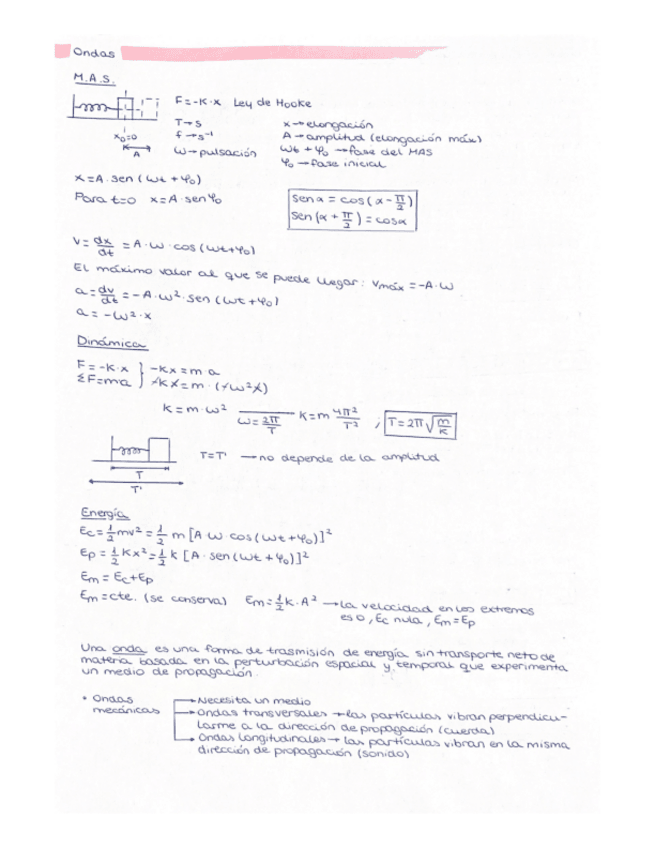 Ondas
M.A.S.
F=-K·x Ley de Hooke
T→s x→elongación
f→s⁻¹ A→amplitud (elongación máx)
x₀=0
A
ω→pulsación ωt+φ₀→fase del MAS
φ₀→fase inicial
x=A·sen(ωt+φ₀)
Para t=0 x=A·senφ₀
senα = cos(α-π/2)
sen(α+π/2)=cosα
v=dx/dt=A·ω·cos(ωt+φ₀)
El máximo valor al que se puede llegar: vmáx=-A·ω
a=dv/dt=-A·ω²·sen(ωt+φ₀)
a=-ω²·x
Dinámica
F=-K·x } -Kx=m·a
ΣF=m·a } -Kx=m·(-ω²x)
K=m·ω² ω=2π/T K=m 4π²/T² ; T=2π√(m/K)
T=T' →no depende de la amplitud
T
T'
Energía
Ec=1/2mv²=1/2 m[A·ω·cos(ωt+φ₀)]²
Ep=1/2Kx²=1/2 k[A·sen(ωt+φ₀)]²
Em=Ec+Ep
Em=cte. (se conserva) Em=1/2k·A² →la velocidad en los extremos
es 0, Ec nula, Em=Ep
Una onda es una forma de trasmisión de energía sin transporte neto de
materia basada en la perturbación espacial y temporal que experimenta
un medio de propagación.
• Ondas mecánicas
→Necesita un medio
→Ondas transversales→las partículas vibran perpendicu-
larme a la dirección de propagación (cuerda)
→Ondas longitudinales→las partículas vibran en la misma
dirección de propagación (sonido)